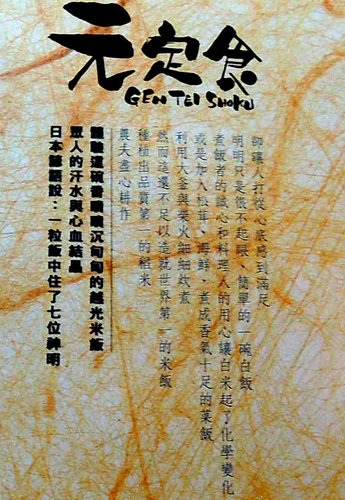 元定食
GEN TEI SHOKU
日本諺語說：一粒飯中住了七位神明
眾人的汗水與心血結晶
體驗這碗香噴噴沉甸甸的越光米飯
農夫盡心耕作
種植出品質第一的稻米
然而這還不足以造就世界第一的米飯
利用大釜與柴火細細炊煮
或是加入松茸、海鮮、煮成香氣十足的菜飯
煮飯者的誠心和料理人的用心讓白米起了化學變化
明明只是很不起眼、簡單的一碗白飯
卻讓人打從心底感到滿足